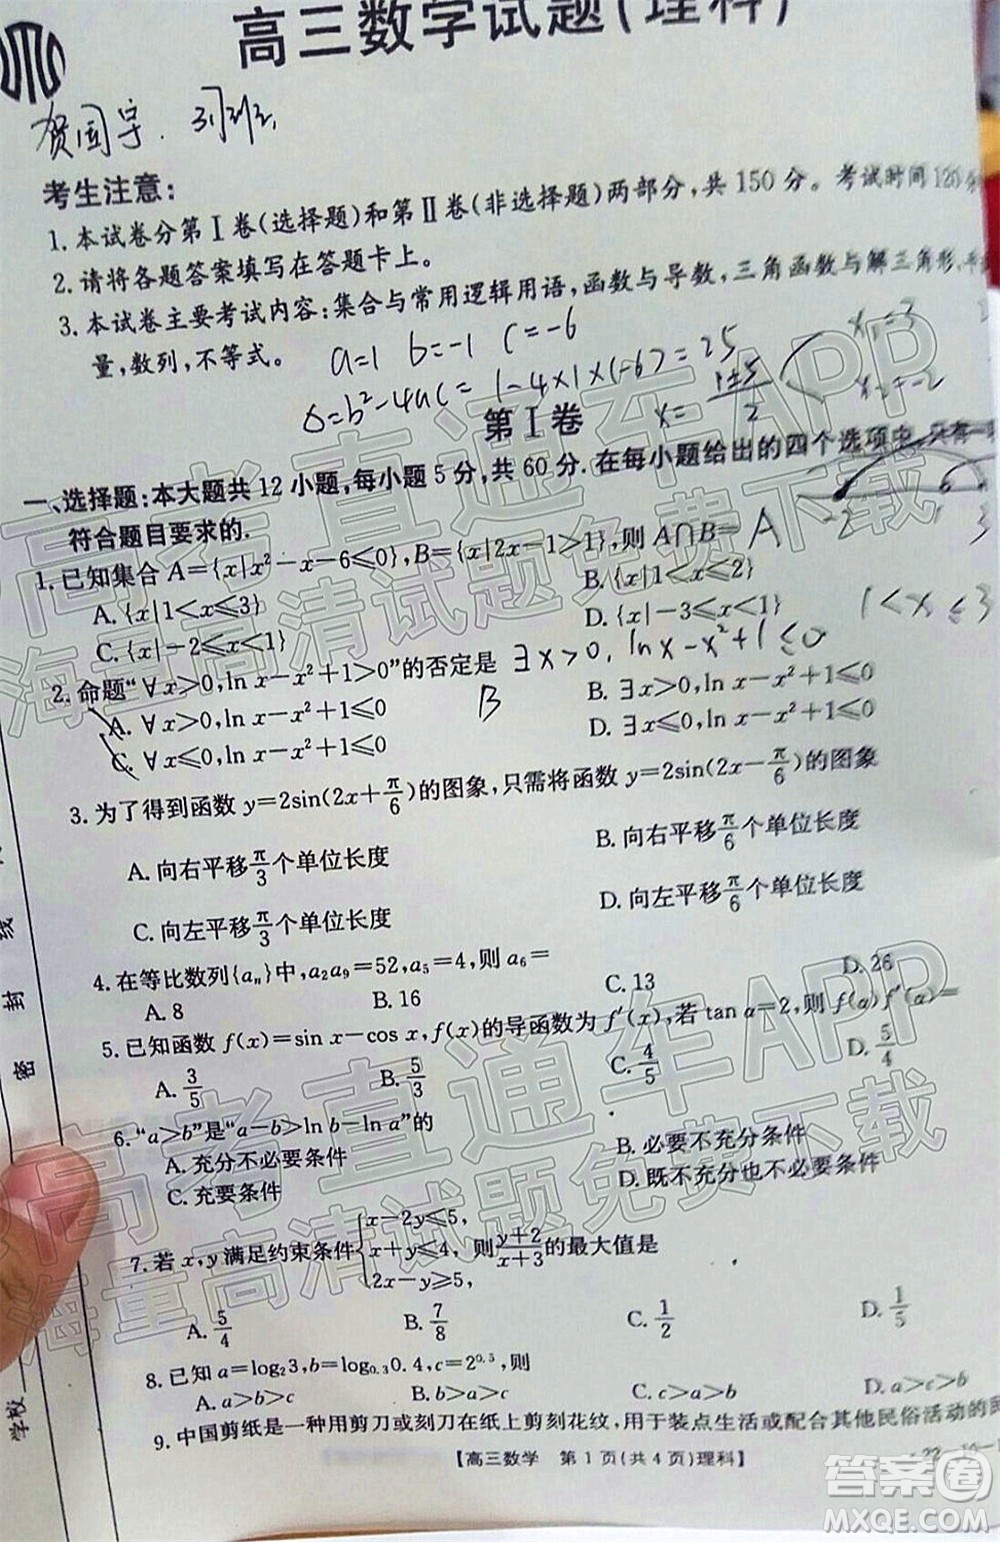 高三数学试题(理科)
贺国宇.
考生注意:
1.本试卷分第Ⅰ卷(选择题)和第Ⅱ卷(非选择题)两部分,共150分。考试时间120分
2.请将各题答案填写在答题卡上。
3.本试卷主要考试内容:集合与常用逻辑用语,函数与导数,三角函数与解三角形,平
量,数列,不等式。
a=1 b=-1 c=-6
Δ=b²-4ac=1-4×1×(-6)=25
x=(1±5)/2
x=3
x=-2
第Ⅰ卷
一、选择题:本大题共12小题,每小题5分,共60分.在每小题给出的四个选项中,只有一
符合题目要求的.
-2 1 3
1.已知集合A={x|x²-x-6≤0},B={x|2x-1>1},则A∩B= A
A.{x|1<x≤3} B.{x|1<x≤2}
C.{x|-2≤x<1} D.{x|-3≤x<1}
1<x≤3
2.命题“∀x>0,ln x-x²+1>0”的否定是 ∃x>0,lnx-x²+1≤0
A.∀x>0,ln x-x²+1≤0 B B.∃x>0,ln x-x²+1≤0
C.∀x≤0,ln x-x²+1≤0 D.∃x≤0,ln x-x²+1≤0
3.为了得到函数y=2sin(2x+π/6)的图象,只需将函数y=2sin(2x-π/6)的图象
A.向右平移π/3个单位长度 B.向右平移π/6个单位长度
C.向左平移π/3个单位长度 D.向左平移π/6个单位长度
4.在等比数列{aₙ}中,a₂a₉=52,a₅=4,则a₆=
A.8 B.16 C.13 D.26
5.已知函数f(x)=sin x-cos x,f(x)的导函数为f′(x),若tan α=2,则f(α)f′(α)=
A.3/5 B.5/3 C.4/5 D.5/4
6.“a>b”是“a-b>ln b-ln a”的
A.充分不必要条件 B.必要不充分条件
C.充要条件 D.既不充分也不必要条件
7.若x,y满足约束条件{x-2y≤5, x+y≤4, 2x-y≥5,则(y+2)/(x+3)的最大值是
A.5/4 B.7/8 C.1/2 D.1/5
8.已知a=log₂3,b=log₀.₃0.4,c=2⁰·⁵,则
A.a>b>c B.b>a>c C.c>a>b D.a>c>b
9.中国剪纸是一种用剪刀或刻刀在纸上剪刻花纹,用于装点生活或配合其他民俗活动的民
【高三数学 第1页(共4页)理科】
学校
密
封
线
高考直通车APP
海量高清试题免费下载
高考直通车APP
海量高清试题免费下载
答案圈
MXQE.COM